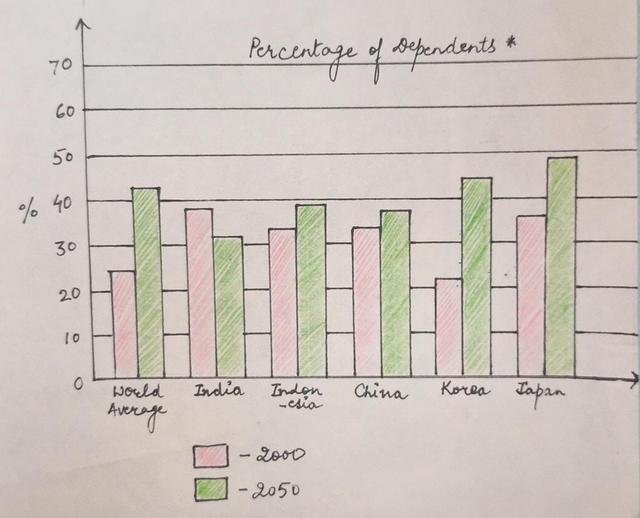 Percentage of Dependents *
70
60
50
% 40
30
20
10
0
World Average India Indon-esia China Korea Japan
- 2000
- 2050